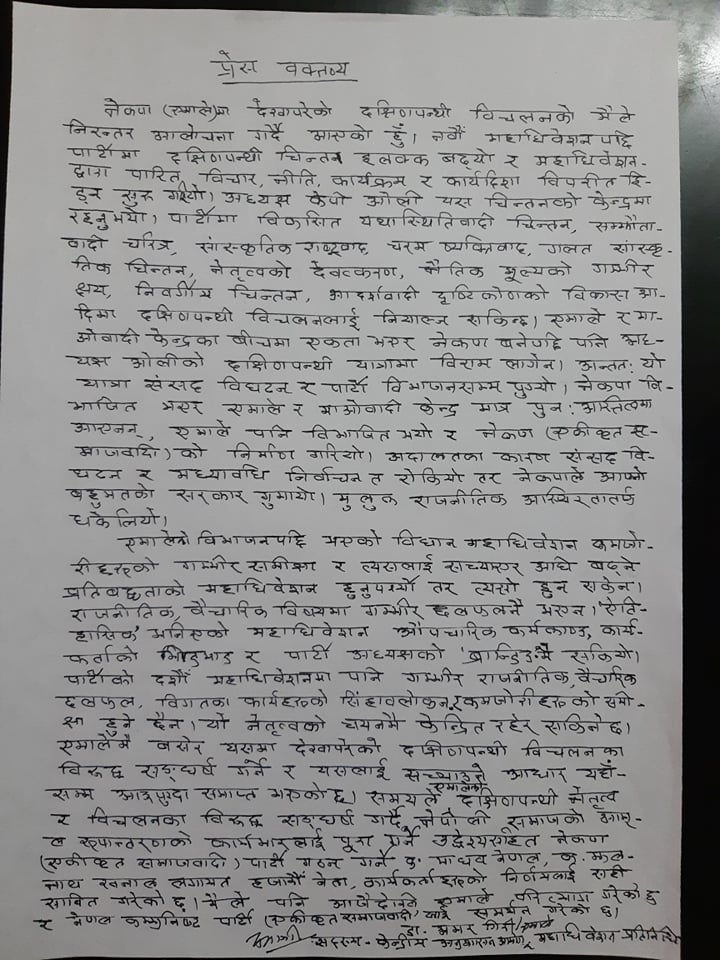 प्रेस वक्तव्य
नेकपा (एमाले)मा देखापरेको दक्षिणपन्थी विचलनको मैले
निरन्तर आलोचना गर्दै आएको हुँ। नवौं महाधिवेशन पछि
पार्टीमा दक्षिणपन्थी चिन्तन ह्वात्त बढ्यो र महाधिवेशन-
द्वारा पारित, विचार, नीति, कार्यक्रम र कार्यदिशा विपरीत हिं-
ड्न सुरू गरियो। अध्यक्ष केपी ओली यस चिन्तनको केन्द्रमा
रहनुभयो। पार्टीमा विकसित यथास्थितिवादी चिन्तन, सम्झौता-
वादी चरित्र, सांस्कृतिक राष्ट्रवाद, चरम व्यक्तिवाद, गलत सांस्कृ-
तिक चिन्तन, नेतृत्वको देवत्वकरण, नैतिक मूल्यको गम्भीर
क्षय, निवर्गीय चिन्तन, आदर्शवादी दृष्टिकोणको विकास आ-
दिमा दक्षिणपन्थी विचलनलाई नियाल्न सकिन्छ। एमाले र मा-
ओवादी केन्द्रका बीचमा एकता भएर नेकपा बनेपछि पनि अध्-
यक्ष ओलीको दक्षिणपन्थी यात्रामा विराम लागेन। अन्तत: यो
यात्रा संसद विघटन र पार्टी विभाजनसम्म पुग्यो। नेकपा वि-
भाजित भएर एमाले र माओवादी केन्द्र मात्र पुन: अस्तित्वमा
आएनन्, एमाले पनि विभाजित भयो र नेकपा (एकीकृत स-
माजवादी) को निर्माण गरियो। अदालतका कारण संसद वि-
घटन र मध्यावधि निर्वाचन त रोकियो तर नेकपाले आफ्नो
बहुमतको सरकार गुमायो। मुलुक राजनीतिक अस्थिरतातर्फ
धकेलियो।
एमालेको विभाजनपछि भएको विधान महाधिवेशन कमजो-
रीहरूको गम्भीर समीक्षा र त्यसलाई सच्याएर अघि बढ्ने
प्रतिबद्धताको महाधिवेशन हुनुपर्थ्यो तर त्यसो हुन सकेन।
राजनीतिक, वैचारिक विषयमा गम्भीर छलफलनै भएन। 'ऐति-
हासिक' भनिएको महाधिवेशन औपचारिक कर्मकाण्ड, कार्य-
कर्ताको भिडभाड र पार्टी अध्यक्षको 'ब्रान्डिङ'मै सकियो।
पार्टीको दशौं महाधिवेशनमा पनि गम्भीर राजनीतिक, वैचारिक
छलफल, विगतका कार्यहरूको सिंहावलोकन र कमजोरीहरूको समी-
क्षा हुने छैन। यो नेतृत्वको चयनमै केन्द्रित रहेर सकिनेछ।
एमालेमै बसेर यसमा देखापरेको दक्षिणपन्थी विचलन का
विरुद्ध सङ्घर्ष गर्ने र यसलाई सच्याउने आधार यहाँ-
सम्म आइपुग्दा समाप्त भएको छ। समयले एमालेको दक्षिणपन्थी नेतृत्व
र विचलनका विरुद्ध सङ्घर्ष गर्दै, नेपाली समाजको आमू-
ल रूपान्तरणको कार्यभारलाई पूरा गर्ने उद्देश्यसहित नेकपा
(एकीकृत समाजवादी) पार्टी गठन गर्ने क. माधव नेपाल, क. झल-
नाथ खनाल लगायत हजारौं नेता, कार्यकर्ताहरूको निर्णयलाई सही
साबित गरेको छ। मैले पनि आजैदेखि एमाले परित्याग गरेको छु
र नेपाल कम्युनिष्ट पार्टी (एकीकृत समाजवादी) लाई समर्थन गरेको छु।
डा. अमर गिरी
सदस्य - केन्द्रीय अनुशासन आयोग, महाधिवेशन प्रतिनिधि